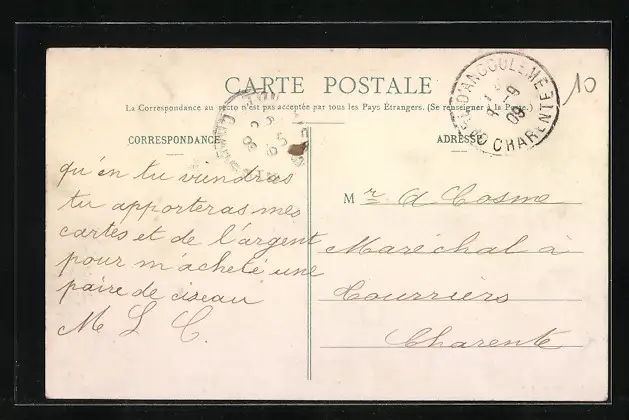 CARTE POSTALE
La Correspondance au recto n'est pas acceptée par tous les Pays Étrangers. (Se renseigner à la Poste.)
CORRESPONDANCE
ADRESSE
GARE D'ANGOULEME
CHARENTE
9
09
10
qu'en tu viendras
tu apporteras mes
cartes et de l'argent
pour m'acheté une
paire de ciseau
M L C.
M r. A Cosme
Maréchal à
Courriers
Charente